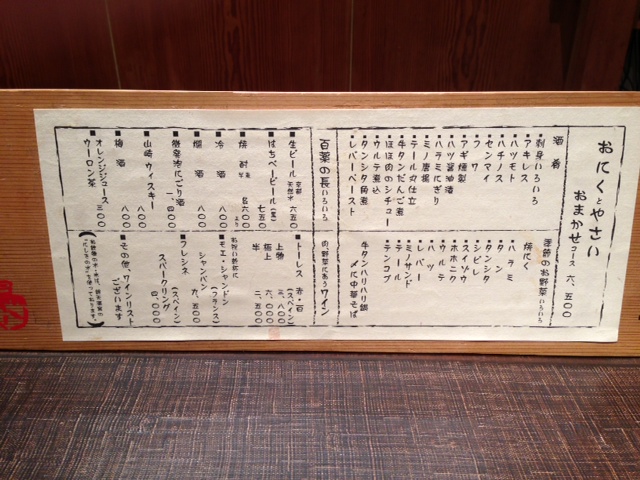 おにくとやさい
おまかせコース 六、五〇〇
酒肴
・刺身いろいろ
・アキレス
・ハツモト
・ハチノス
・センマイ
・フワ
・アギ燻製
・ハツ醤油漬
・ハラミにぎり
・ミノ唐揚
・テール丸仕立
・牛タンだんご煮
・ほほ肉のシチュー
・ウルテ煮込
・タンシタ角煮
・レバーペースト
季節のお野菜いろいろ
焼にく
・ハラミ
・タン
・タンシタ
・シビレ
・マイゾウ
・ホホニク
・ウルテ
・ハツ
・レバ
・ミノサンド
・テール
・テンコブ
牛タンハリハリ鍋
〆に中華そば
百薬の長いろいろ
■生ビール 京都天然水 六五〇
■はちべービール(黒) 七五〇
■焼酎 芋 麦 各六〇〇より
■冷酒 八〇〇
■燗酒 八〇〇
■微発泡にごり酒 一、〇〇〇
■山崎ウィスキー 八〇〇
■梅酒 八〇〇
■オレンジジュース
■ウーロン茶 三〇〇
肉野菜にあうワイン
■トーレス 赤・白
(スペイン)
上物 三、八〇〇
極上 六、〇〇〇
半 二、五〇〇
お祝い的気分に
■モエ・シャンドン
(フランス)
シャンパン 九、五〇〇
■フレシネ
(スペイン)
スパークリング 四、〇〇〇
■その他、ワインリスト
ございます